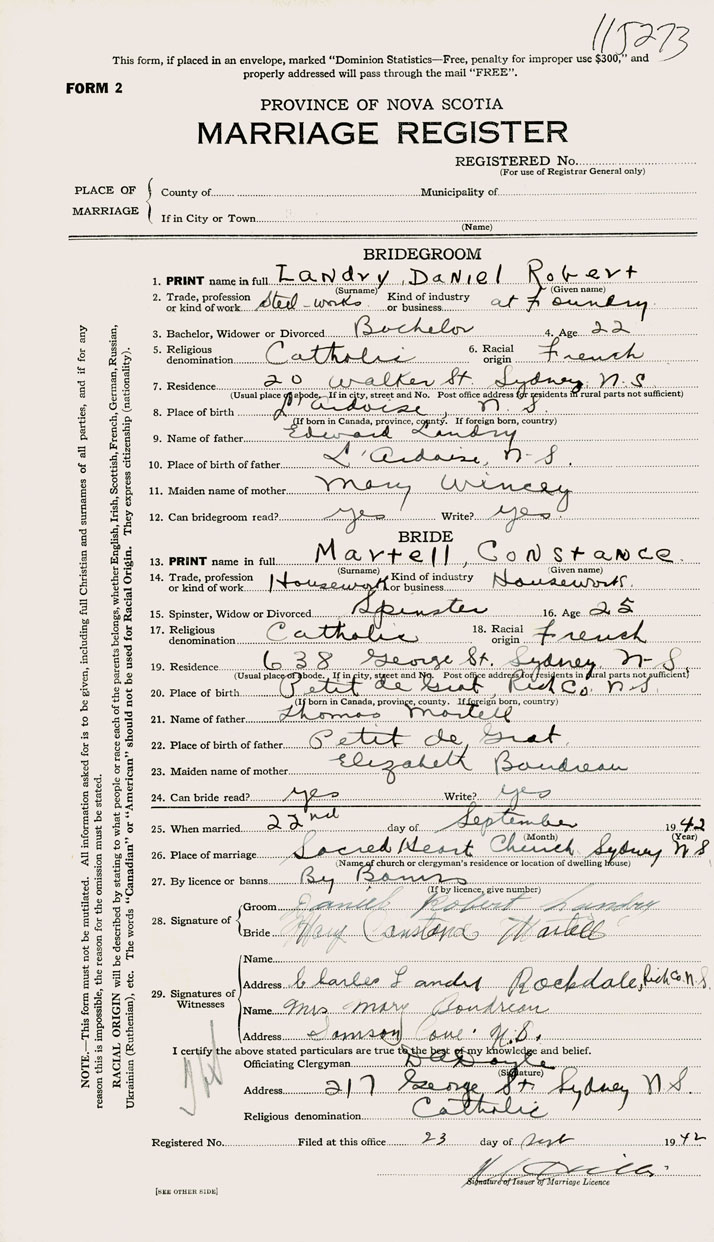 115273
This form, if placed in an envelope, marked "Dominion Statistics—Free, penalty for improper use $300," and
properly addressed will pass through the mail "FREE".
FORM 2
PROVINCE OF NOVA SCOTIA
MARRIAGE REGISTER
REGISTERED No.
(For use of Registrar General only)
PLACE OF MARRIAGE
County of Municipality of
If in City or Town
(Name)
BRIDEGROOM
1. PRINT name in full Landry, Daniel Robert
(Surname) (Given name)
2. Trade, profession or kind of work Steel-works Kind of industry or business at Foundry
3. Bachelor, Widower or Divorced Bachelor 4. Age 22
5. Religious denomination Catholic 6. Racial origin French
7. Residence 20 Walker St. Sydney, N.S.
(Usual place of abode. If in city, street and No. Post office address for residents in rural parts not sufficient)
8. Place of birth L'Ardoise, N.S.
(If born in Canada, province, county. If foreign born, country)
9. Name of father Edward Landry
10. Place of birth of father L'Ardoise, N-S.
11. Maiden name of mother Mary Wincey
12. Can bridegroom read? yes Write? yes.
BRIDE
13. PRINT name in full Martell, Constance.
(Surname) (Given name)
14. Trade, profession or kind of work Housework Kind of industry or business Housework.
15. Spinster, Widow or Divorced Spinster 16. Age 25
17. Religious denomination Catholic 18. Racial origin French
19. Residence 638 George St. Sydney, N-S.
(Usual place of abode. If in city, street and No. Post office address for residents in rural parts not sufficient)
20. Place of birth Petit de Grat, Rich Co. N-S
(If born in Canada, province, county. If foreign born, country)
21. Name of father Thomas Martell
22. Place of birth of father Petit de Grat.
23. Maiden name of mother Elizabeth Boudreau
24. Can bride read? yes Write? yes
25. When married 22nd day of September 1942
(Month) (Year)
26. Place of marriage Sacred Heart Church Sydney N S
(Name of church or clergyman's residence or location of dwelling house)
27. By licence or banns By Banns
(If by licence, give number)
28. Signature of
Groom Daniel Robert Landry
Bride Mary Constance Martell
29. Signatures of Witnesses
Name
Address Charles Landry Rockdale, Rich Co. N.S.
Name Mrs Mary Boudreau
Address Samson Cove N.S.
I certify the above stated particulars are true to the best of my knowledge and belief.
Officiating Clergyman Doyle
(Signature)
Address 217 George St Sydney N S.
Religious denomination Catholic
Registered No. Filed at this office 23 day of Sept 1942
Signature of Issuer of Marriage Licence
[SEE OTHER SIDE]
NOTE.—This form must not be mutilated. All information asked for is to be given, including full Christian and surnames of all parties, and if for any
reason this is impossible, the reason for the omission must be stated.
RACIAL ORIGIN will be described by stating to what people or race each of the parents belongs, whether English, Irish, Scottish, French, German, Russian,
Ukrainian (Ruthenian), etc. The words "Canadian" or "American" should not be used for Racial Origin. They express citizenship (nationality).